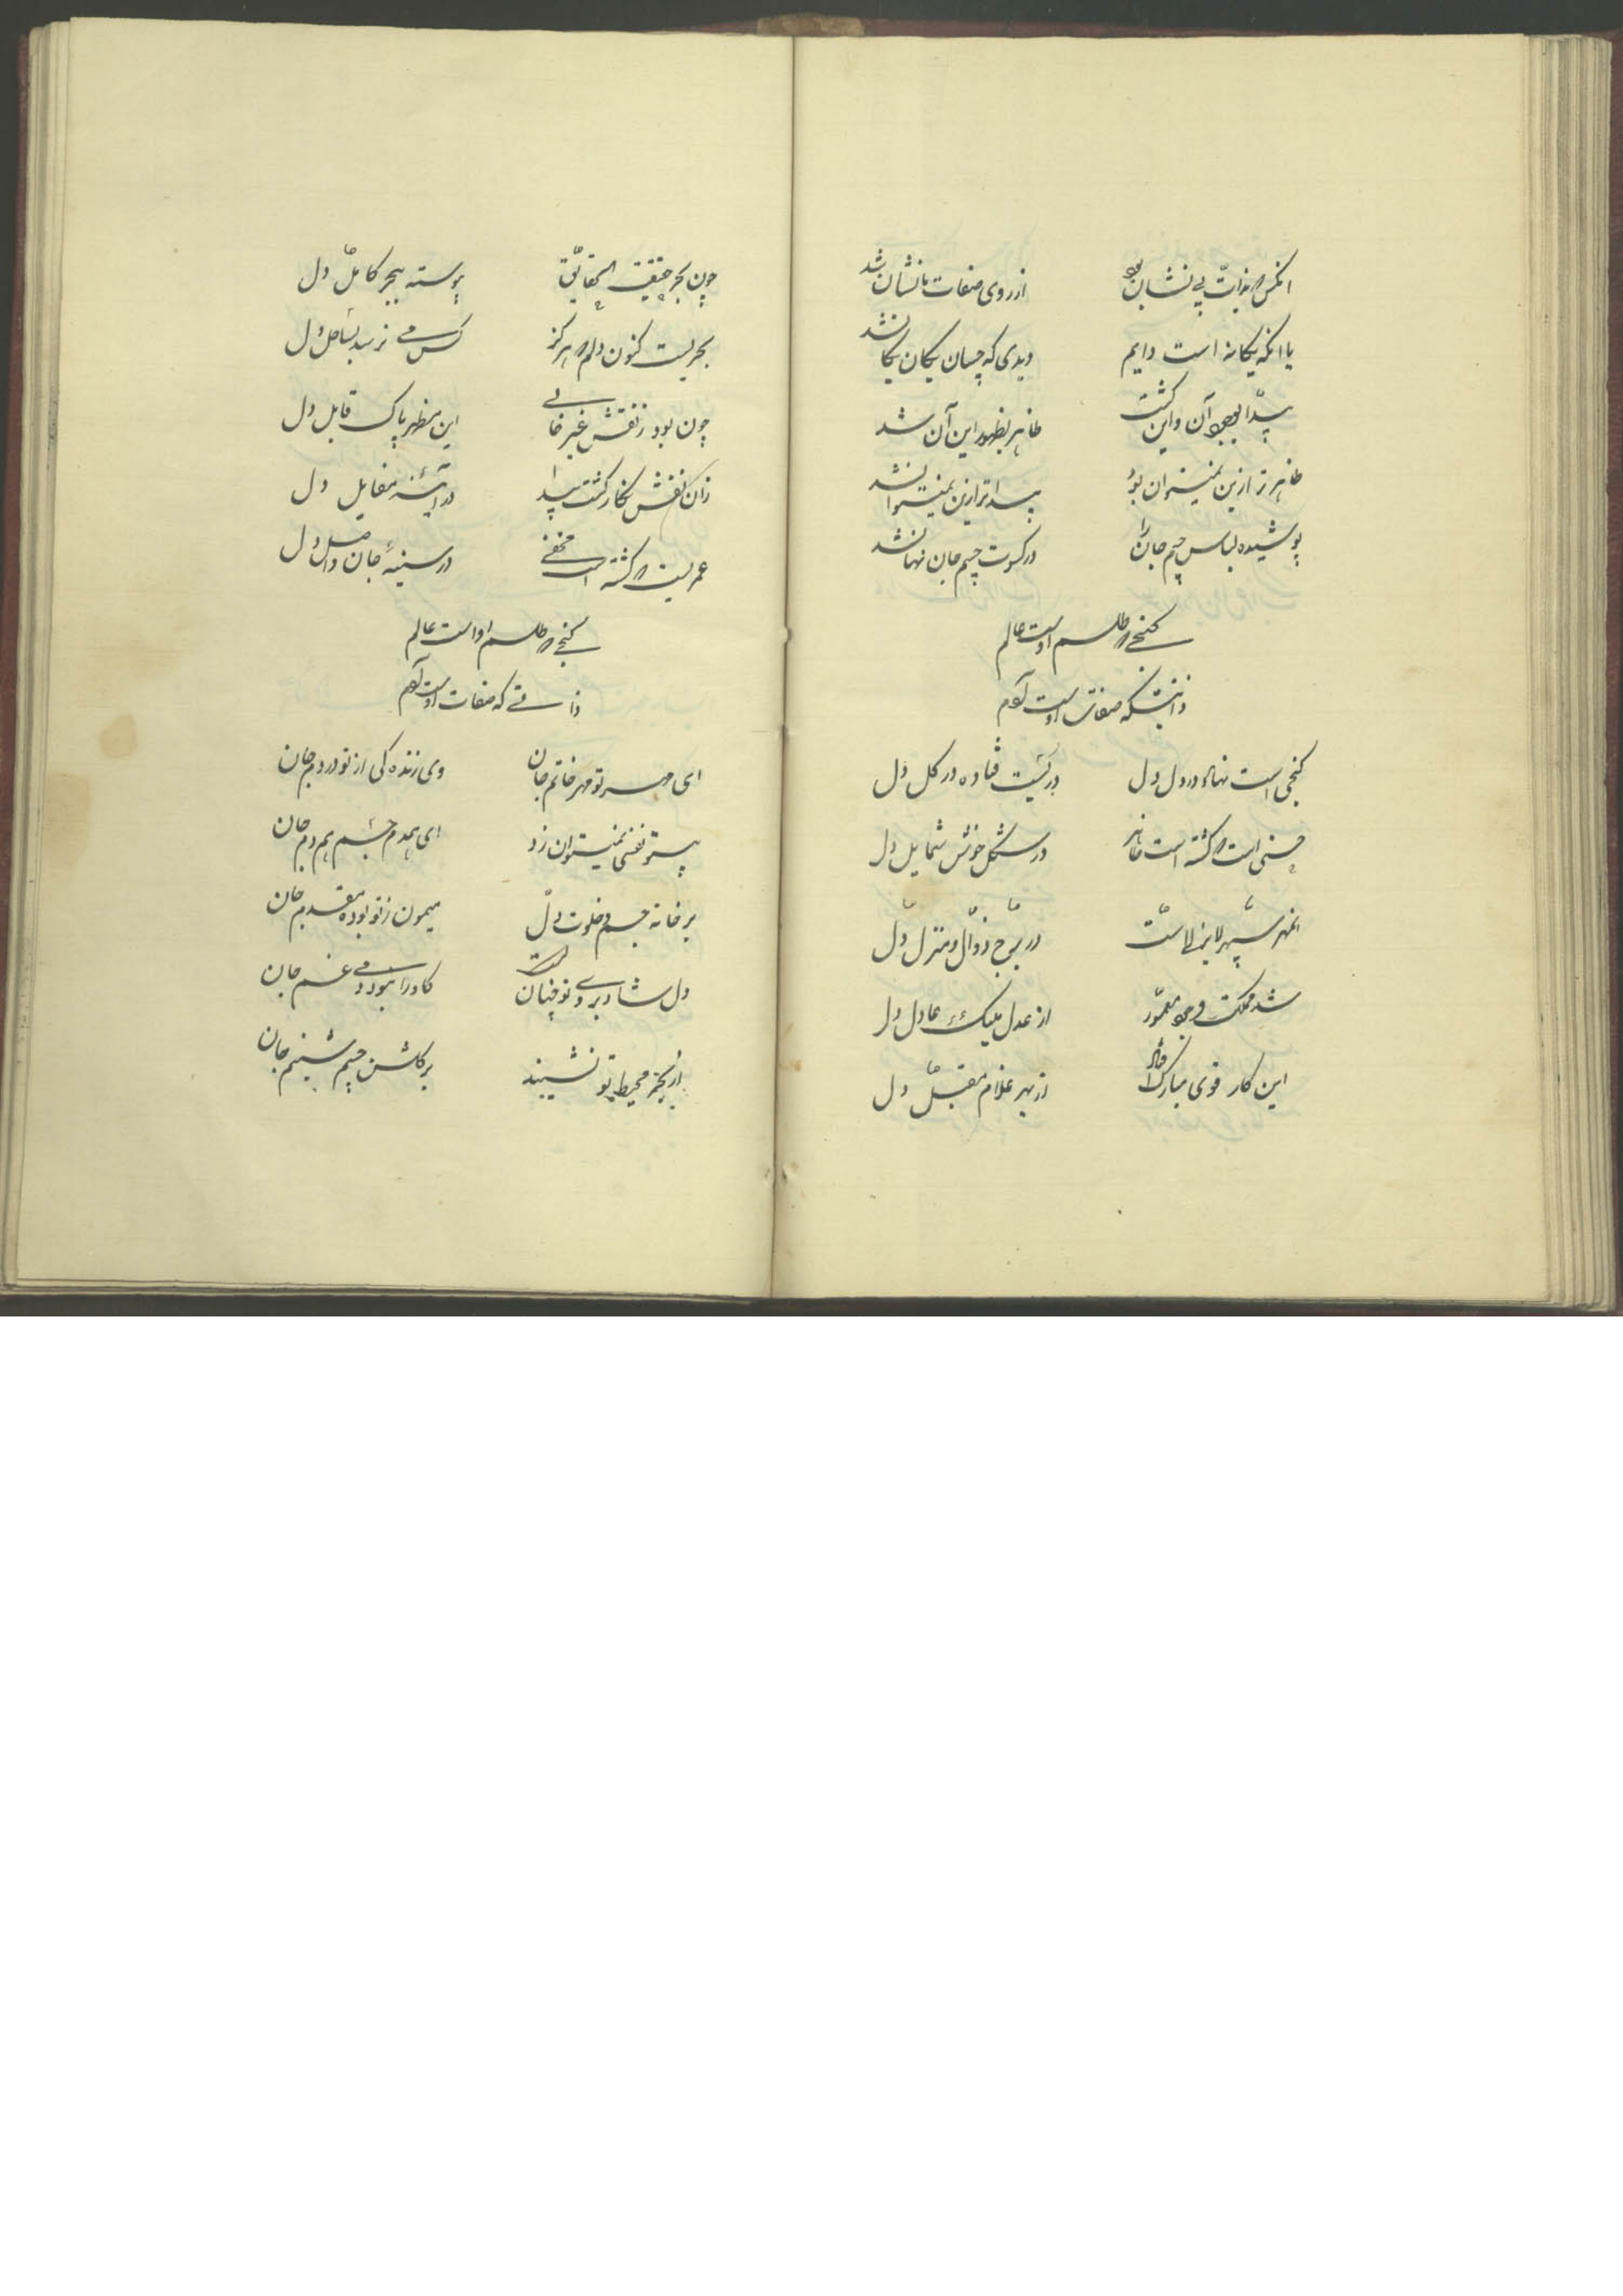 آنکس که بذات بی نشان بود از روی صفات با نشان شد
با آنکه یگانه است دایم دیدی که چسان یگان یگان شد
پیدا بوجود آن و این گشت ظاهر بظهور این و آن شد
ظاهرتر ازین نمیتوان بود پیداتر ازین نمیتوان شد
پوشیده لباس جسم جان را در کسوت جسم جان نهان شد
گنجی که طلسم اوست عالم
ذاتیکه صفات اوست آدم
گنجی است نهان در دل دل دریست فتاده در گل دل
حسنی است که گشته است ظاهر در شکل خوش شمایل دل
آنمهر سپهر لایزالست در برج زوال و منزل دل
شد مملکت وجود معمور از عدل ملیک عادل دل
این کار قوی مبارک افتاد از بهر غلام مقبل دل
چون بحر حقیقت الحقایق پیوسته ببحر کامل دل
بحریست کنون دلم که هرگز کس می نرسد بساحل دل
چون بود ز نقش غیر خالی این مظهر پاک قابل دل
زان نقش نگار گشت پیدا در آئینه مقابل دل
عمریست که گشته است مخفی در سینهٔ جان و اصل دل
گنجی که طلسم او است عالم
ذاتی که صفات اوست آدم
ای مهر تو مهر خاتم جان وی زنده گی از تو در دم جان
بیتو نفسی نمیتوان زد ای همدم جسم همدم جان
بر خانه جسم و خلوت دل میمون ز تو بوده مقدم جان
دل شاد بروی تو چنان است کاو را نبود دمی غم جان
از بحر محیط تو نشیند بر گلشن جسم شبنم جان